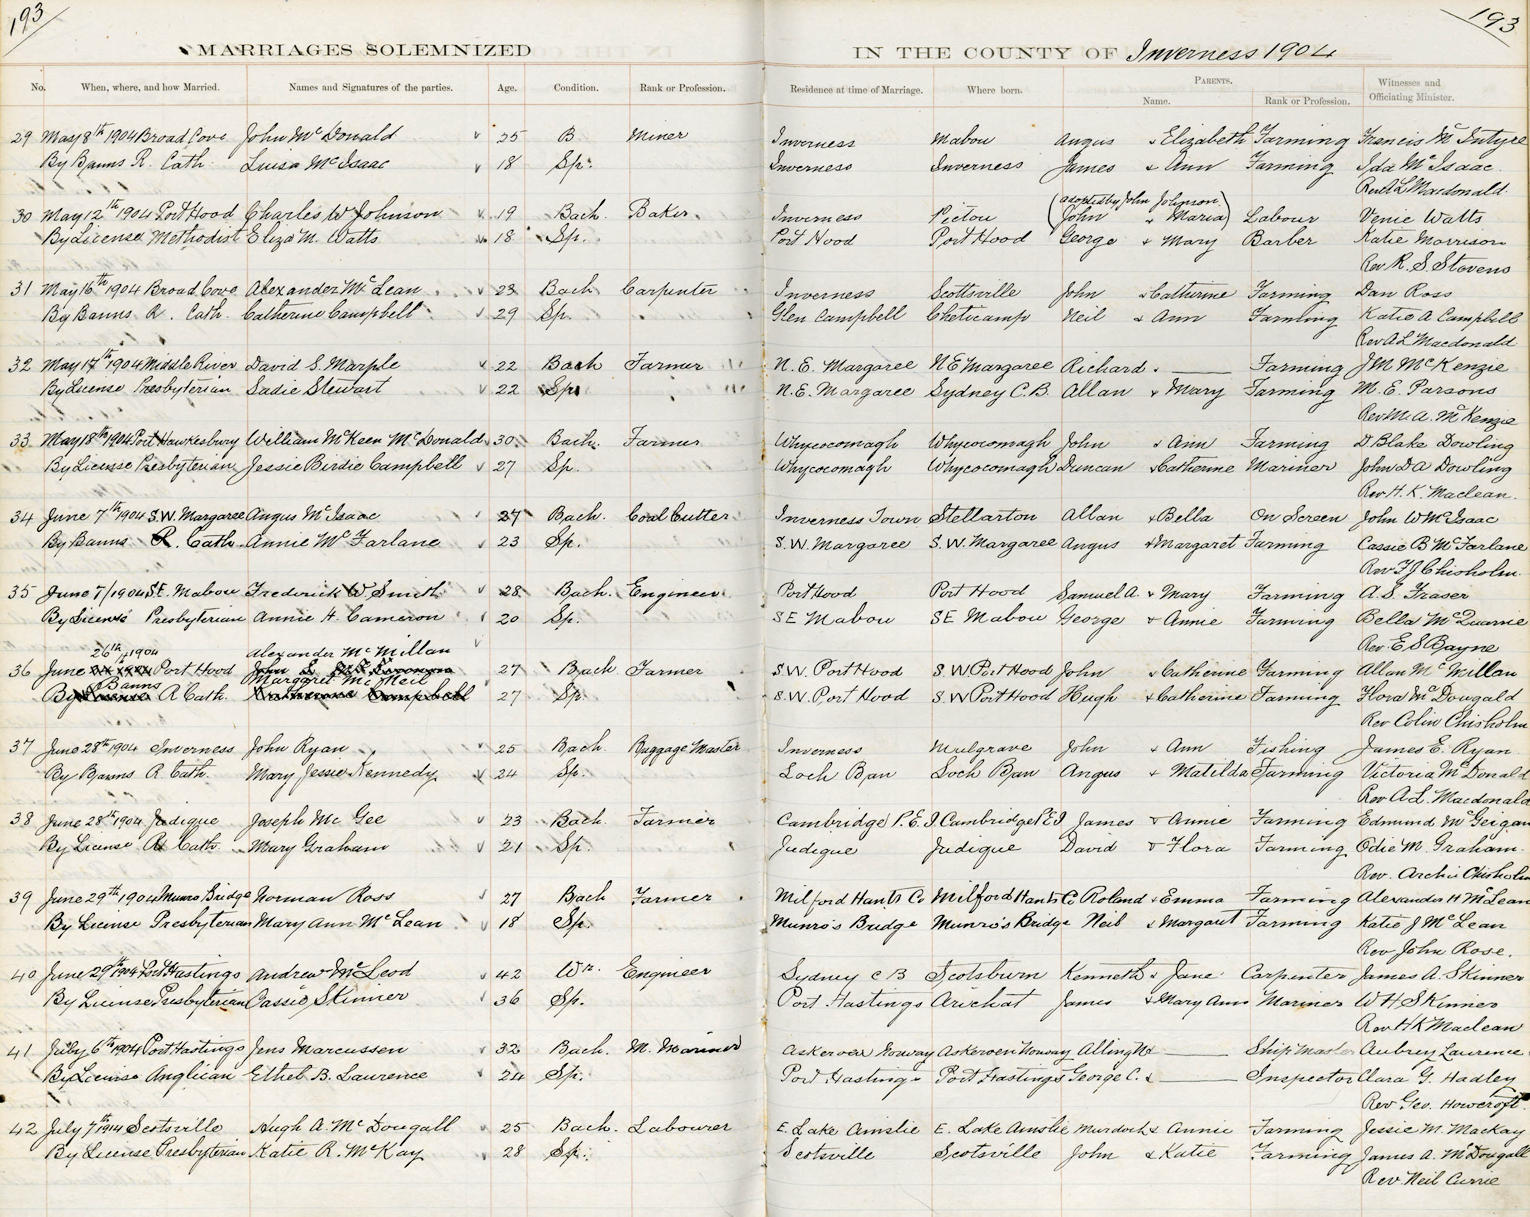 193
193
MARRIAGES SOLEMNIZED IN THE COUNTY OF Inverness 1904
No. When, where, and how Married. Names and Signatures of the parties. Age. Condition. Rank or Profession. Residence at time of Marriage. Where born. PARENTS. Name. Rank or Profession. Witnesses and Officiating Minister.
29 May 8th 1904 Broad Cove John McDonald 25 B Miner Inverness Mabou Angus & Elizabeth Farming Francis McIntyre
By Banns R. Cath. Luisa McIsaac 18 Sp. Inverness Inverness James & Ann Farming Ida McIsaac
Rev A L Macdonald
(adopted by John Johnson
30 May 12th 1904 Port Hood Charles W Johnson 19 Bach. Baker Inverness Pictou John & Maria) Labour Venie Watts
By License Methodist Eliza M. Watts 18 Sp. Port Hood Port Hood George & Mary Barber Katie Morrison
Rev R. S. Stevens
31 May 16th 1904 Broad Cove Alexander McLean 23 Bach Carpenter Inverness Scottsville John & Catherine Farming Dan Ross
By Banns R. Cath. Catherine Campbell 29 Sp. Glen Campbell Cheticamp Neil & Ann Farming Katie A Campbell
Rev A L Macdonald
32 May 17th 1904 Middle River David S. Marple 22 Bach Farmer N. E. Margaree N E Margaree Richard Farming J M McKenzie
By License Presbyterian Sadie Stewart 22 Sp. N. E. Margaree Sydney C.B. Allan & Mary Farming M. E. Parsons
Rev M. A. McKenzie
33 May 18th 1904 Port Hawkesbury William McKeen McDonald 30 Bach. Farmer Whycocomagh Whycocomagh John & Ann Farming D. Blake Dowling
By License Presbyterian Jessie Birdie Campbell 27 Sp. Whycocomagh Whycocomagh Duncan & Catherine Mariner John D A Dowling
Rev H. K. Maclean.
34 June 7th 1904 S.W. Margaree Angus McIsaac 27 Bach. Coal Cutter Inverness Town Stellarton Allan & Bella On Screen John W McIsaac
By Banns R. Cath. Annie McFarlane 23 Sp. S. W. Margaree S. W. Margaree Angus & Margaret Farming Cassie B McFarlane
Rev F J Chisholm.
35 June 7/1904 S.E. Mabou Frederick W. Smith 28 Bach. Engineer Port Hood Port Hood Samuel A. & Mary Farming A. S. Fraser
By License Presbyterian Annie H. Cameron 20 Sp. S E Mabou S E Mabou George & Annie Farming Bella McQuarrie
Rev E S Bayne
26th 1904 Alexander McMillan
36 June Port Hood 27 Bach. Farmer S.W. Port Hood S.W. Port Hood John & Catherine Farming Allan McMillan
Banns Margaret McNeil
By R Cath. 27 Sp. S.W. Port Hood S.W Port Hood Hugh & Catherine Farming Flora McDougald
Rev Colin Chisholm
37 June 28th 1904 Inverness John Ryan 25 Bach. Baggage Master Inverness Mulgrave John & Ann Fishing James E. Ryan
By Banns R Cath. Mary Jessie Kennedy 24 Sp. Loch Ban Loch Ban Angus & Matilda Farming Victoria McDonald
Rev A. L. Macdonald
38 June 28th 1904 Judique Joseph McGee 23 Bach. Farmer Cambridge P.E.I Cambridge P.E.I James & Annie Farming Edmund McGeigan
By License R Cath. Mary Graham 21 Sp. Judique Judique David & Flora Farming Odie M. Graham.
Rev. Archie Chisholm
39 June 29th 1904 Munro Bridge Norman Ross 27 Bach Farmer Milford Hants Co Milford Hants C Roland & Emma Farming Alexander H McLean
By License Presbyterian Mary Ann McLean 18 Sp. Munro's Bridge Munro's Bridge Neil & Margaret Farming Katie J McLean
Rev John Rose.
40 June 29th 1904 Port Hastings Andrew McLeod 42 Wr. Engineer Sydney C B Scotsburn Kenneth & Jane Carpenter James A. Skinner
By License Presbyterian Cassie Skinner 36 Sp. Port Hastings Arichat James & Mary Ann Mariner W H Skinner
Rev H K Maclean
41 July 6th 1904 Port Hastings Jens Marcussen 32 Bach. M. Mariner Askeroen Norway Askeroen Norway Ship Master Aubrey Laurence
By License Anglican Ethel B. Lawrence 24 Sp. Port Hastings Port Hastings George C. & Inspector Clara G. Hadley
Rev Geo. Howcroft.
42 July 7th 1914 Scotsville Hugh A. McDougall 25 Bach. Labourer E. Lake Ainslie E. Lake Ainslie Murdoch & Annie Farming Jessie M. Mackay
By License Presbyterian Katie R. McKay 28 Sp. Scotsville Scotsville John & Katie Farming James A. McDougall
Rev Neil Currie